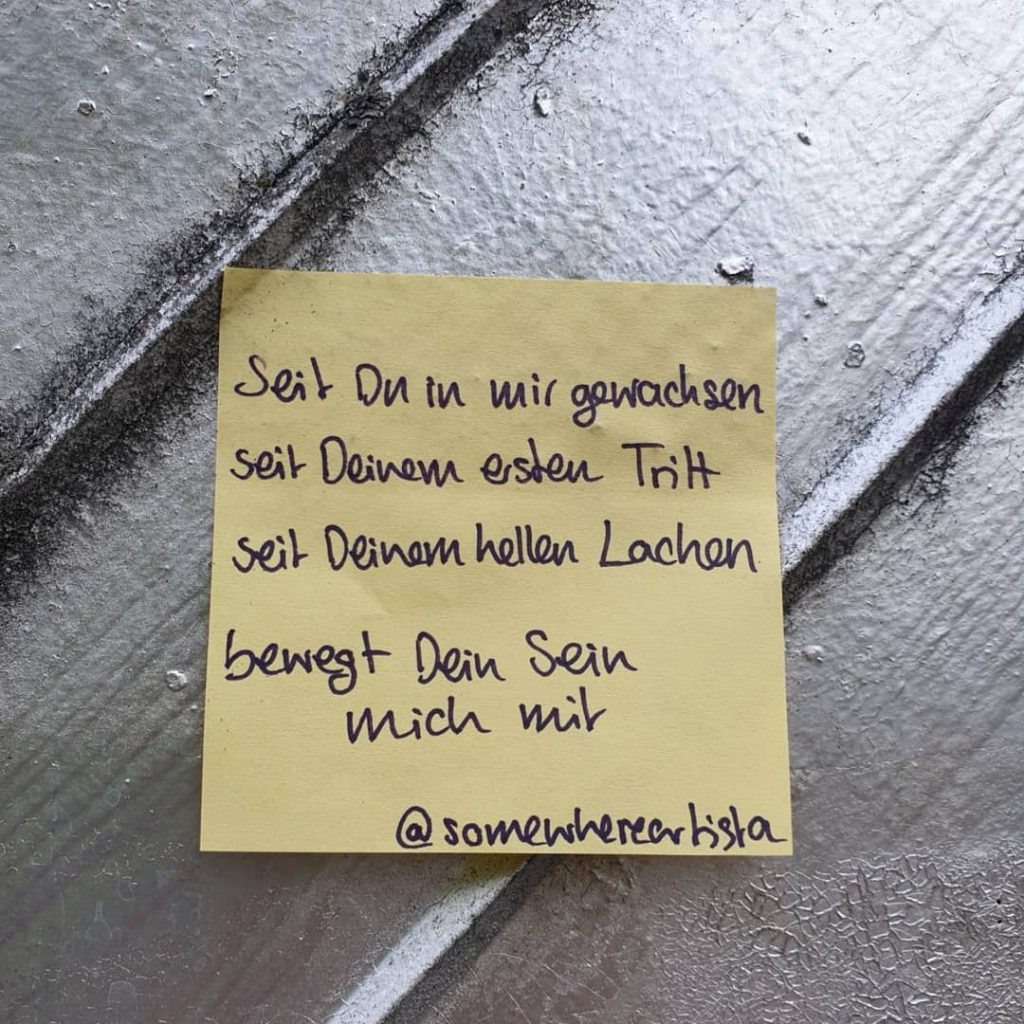 Seit Du in mir gewachsen
seit Deinem ersten Tritt
seit Deinem hellen Lachen
bewegt Dein Sein
mich mit
@somewhereartista